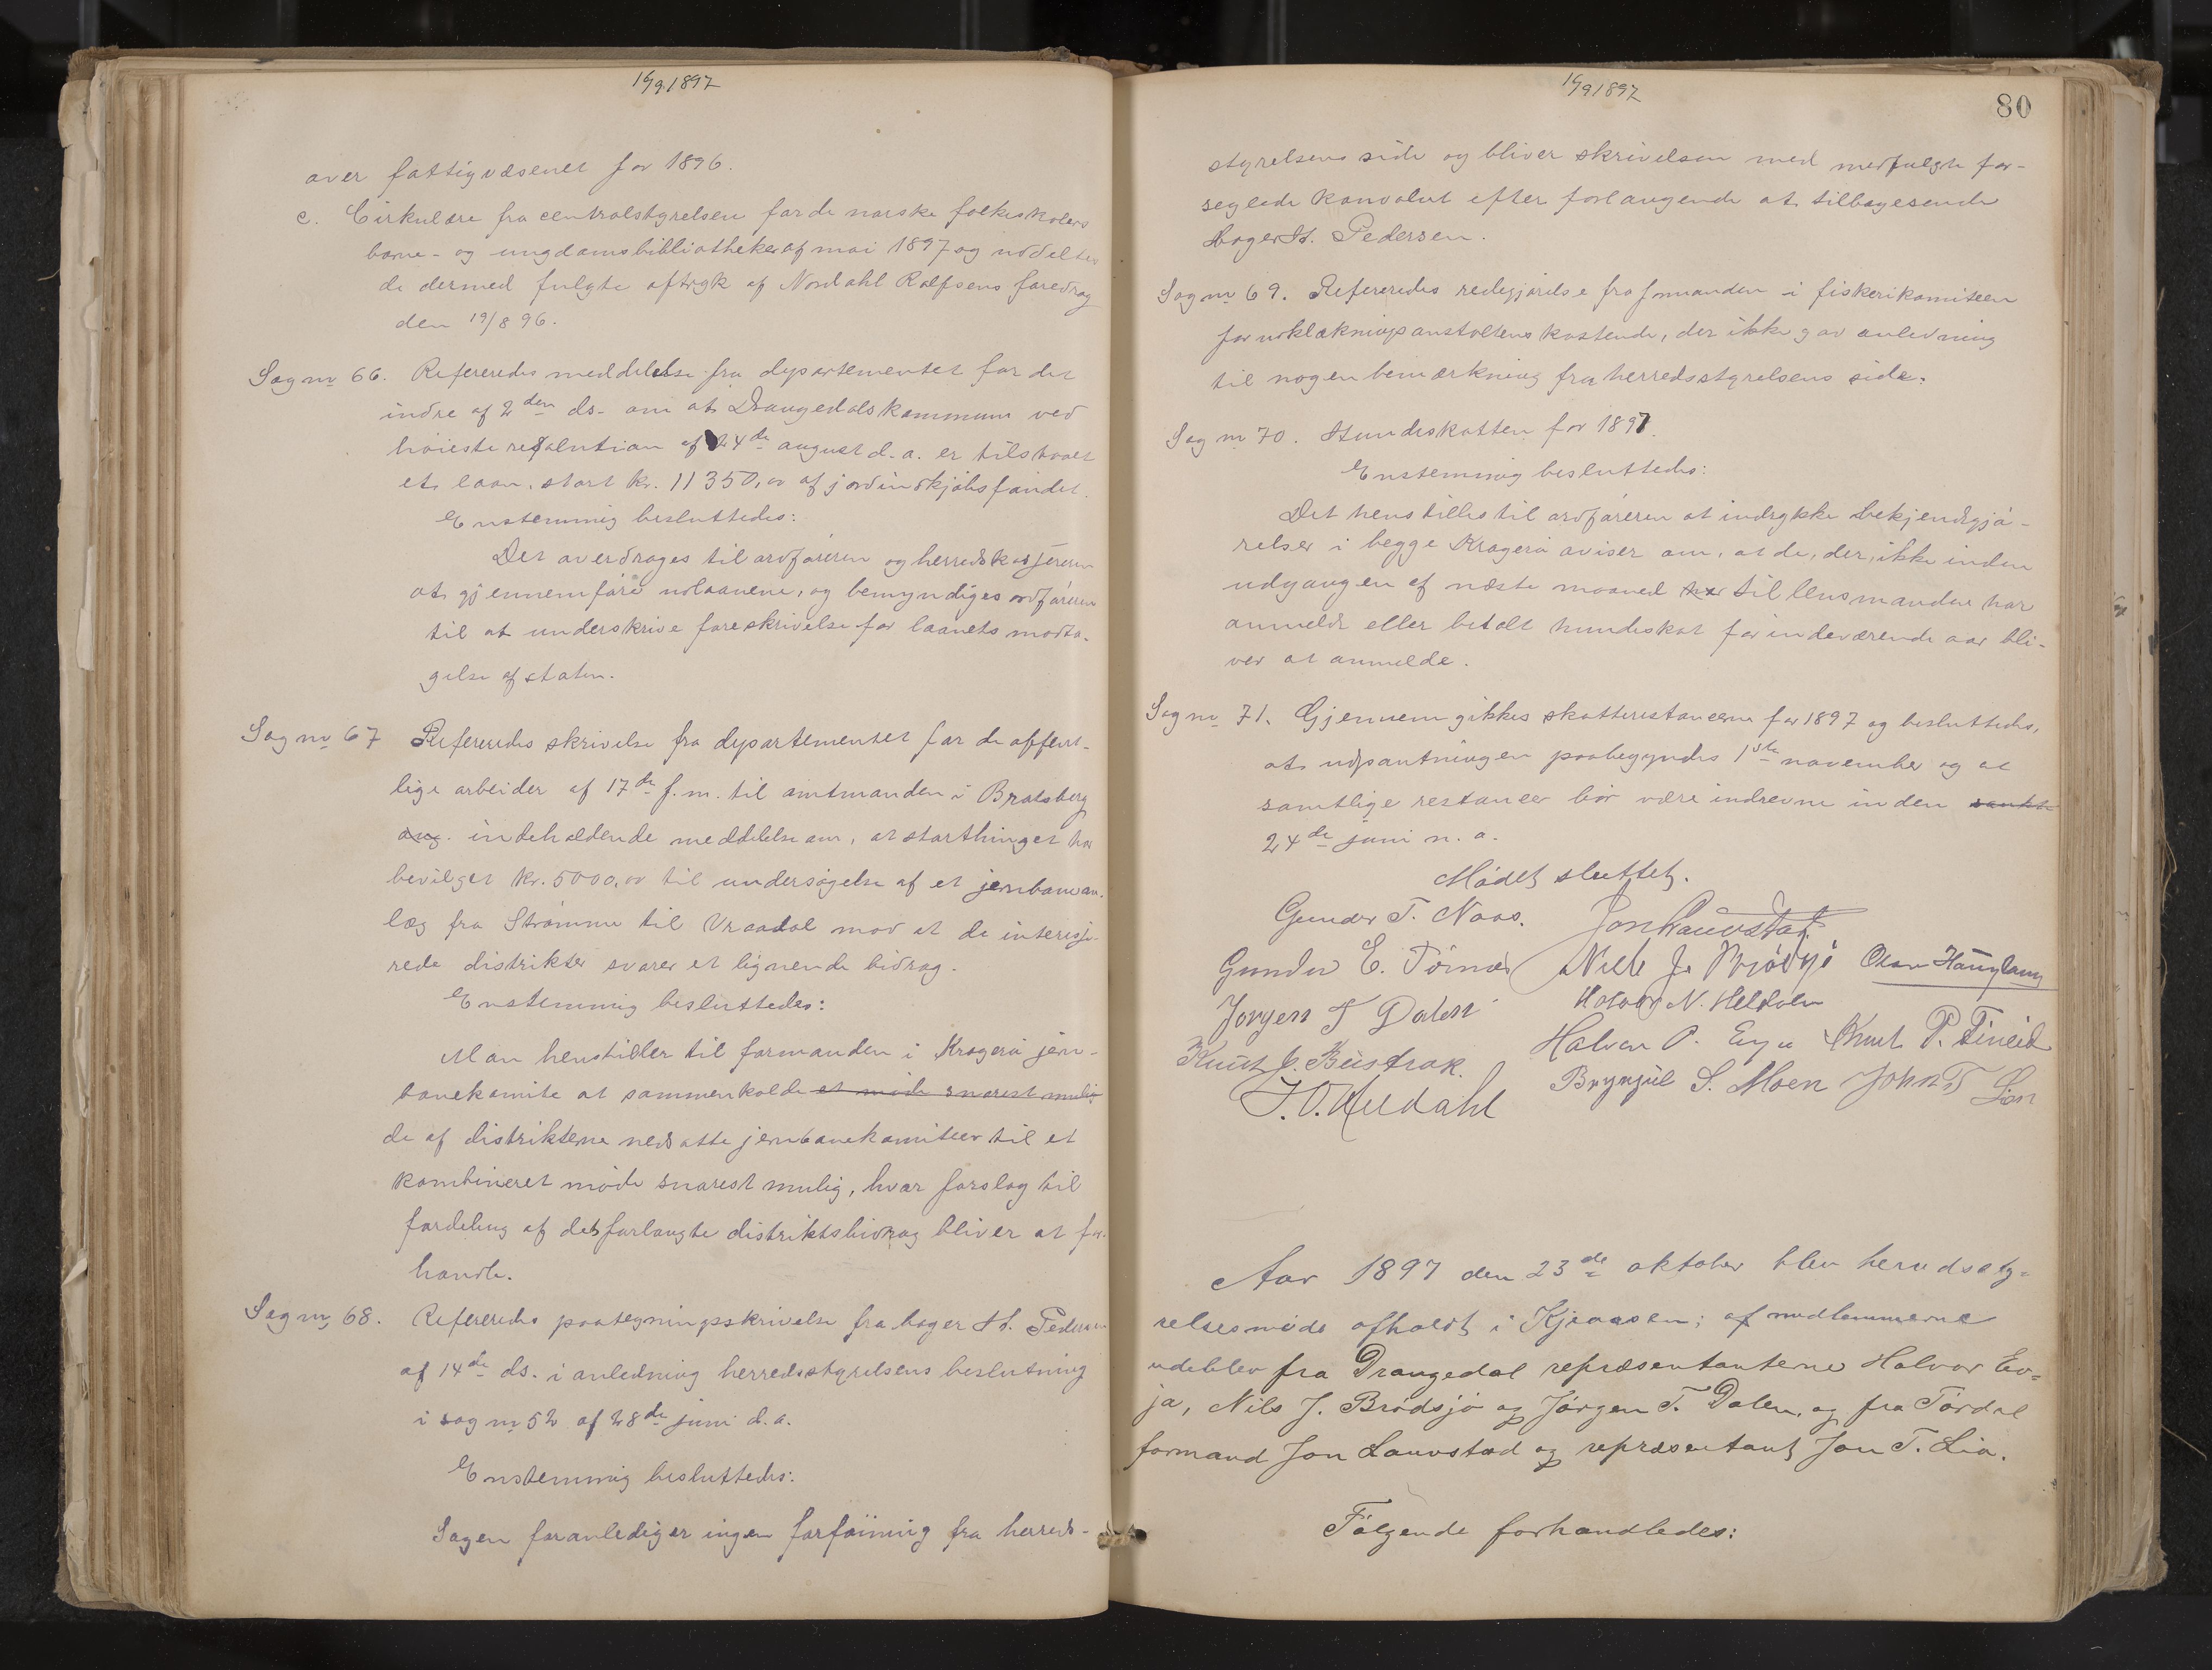 16/9 1897
over fattigvæsenet for 1896.
c. Cirkulære fra centralstyrelsen for de norske folkeskolers
barne- og ungdomsbibliotheker af mai 1897 og uddeltes
de dermed fulgte aftryk af Nordahl Rolfsens foredrag
den 19/8 96.
Sag nr 66. Refereredes meddelelse fra departementet for det
indre af 2den ds. om at Drangedals kommune ved
høieste resolution af 24de august d.a. er tilstaaet
et laan, stort kr. 11350,00 af jordindkjøbsfondet.
Enstemmig besluttedes:
Det overdrages til ordføreren og herredskasjereren
at gjennemføre udlaanene, og bemyndiges ordføreren
til at underskrive foreskrivelse for laanets modta-
gelse af staten.
Sag nr 67 Refereredes skrivelse fra departementet for de offent-
lige arbeider af 17de f.m. til amtmanden i Bratsberg
ang. indeholdende meddelelse om, at storthinget har
bevilget kr. 5000,00 til undersøgelse af et jernbanean-
læg fra Strømme til Vraadal mod at de interesse-
rede distrikter svarer et lignende bidrag.
Enstemmig besluttedes:
Man henstiller til formanden i Kragerø jern-
banekomite at sammenkalde et møde snarest mulig
de af distrikterne nedsatte jernbanekomiteer til et
kombineret møde snarest mulig, hvor forslag til
fordeling af det forlangte distriktsbidrag bliver at for-
handle.
Sag nr 68. Refereredes paategningsskrivelse fra bager H. Pedersen
af 14de ds. i anledning herredsstyrelsens beslutning
i sag nr 52 af 28de juni d.a.
Enstemmig besluttedes:
Sagen foranlediger ingen forføining fra herreds-
16/9 1897
80
styrelsens side og bliver skrivelsen med medfulgte for-
seglede konvolut efter forlangende at tilbagesende
Bager H. Pedersen.
Sag nr 69. Refereredes redegjørelse fra formanden i fiskerikomiteen
for udklækningsanstaltens kostende, der ikke gav anledning
til nogen bemærkning fra herredsstyrelsens side.
Sag nr 70. Hundeskatten for 1897.
Enstemmig besluttedes:
Det henstilles til ordføreren at indrykke bekjendtgjø-
relser i begge Kragerø aviser om, at de, der, ikke inden
udgangen af næste maaned har til lensmanden har
anmeldt eller betalt hundeskat for indeværende aar bli-
ver at anmelde.
Sag nr 71. Gjennemgikkes skatterestancerne for 1897 og besluttedes,
at udpantningen paabegyndes 1ste november og at
samtlige restancer bør være inddrevne inden
24de juni n.a.
Mødet sluttet.
Gunder T. Naas. Jon Lauvstad
Gunder E. Tørnes Nils J. Brødsjø Olav Haugland
Jørgen T Dalen Halvor N. Heldalen
Knut J. Bustrak. Halvor P. Evja Knut P. Fineid
J. O. Neidahl Brynjul S. Moen John T Lia
Aar 1897 den 23de oktober blev herredssty-
relsesmøde afholdt i Kjeaasen; af medlemmerne
udeblev fra Drangedal repræsentanterne Halvor Ev-
ja, Nils J. Brødsjø og Jørgen T. Dalen, og fra Tørdal
formand Jon Lauvstad og repræsentant Jon T. Lia.
Følgende forhandledes: